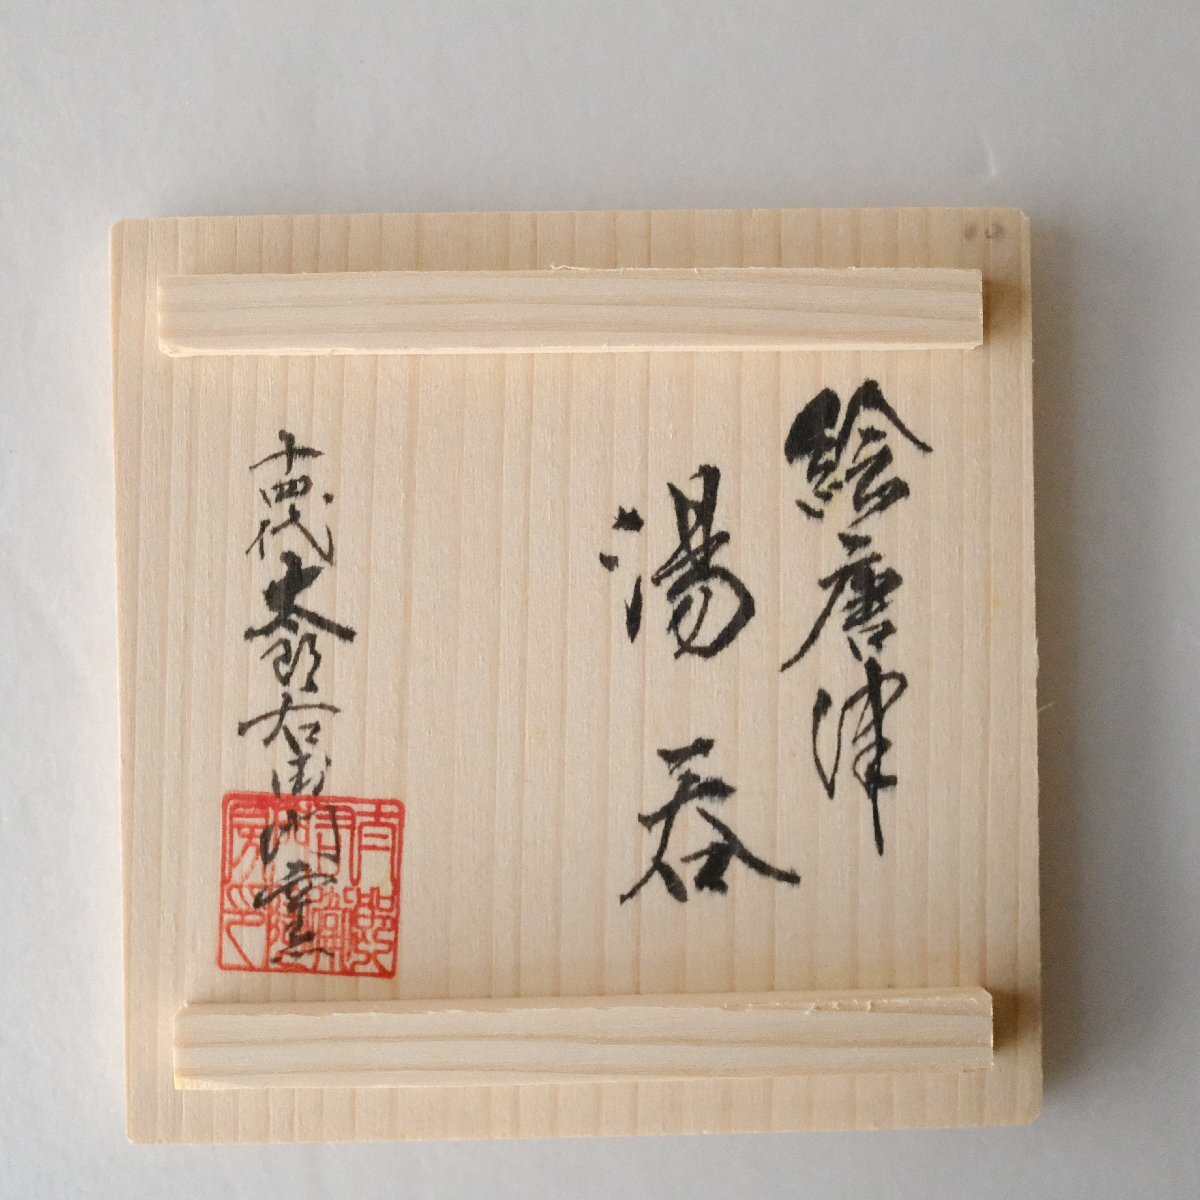 絵唐津
湯呑
十四代太郎右衛門窯